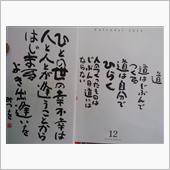 ひとの世の幸不幸は
人と人とが逢うことから
はじまる
よき出逢いを
Calendar
道
道はじぶんで
つくる
道は自分で
ひらく
人のつくったものは
じぶんの道には
ならない
12